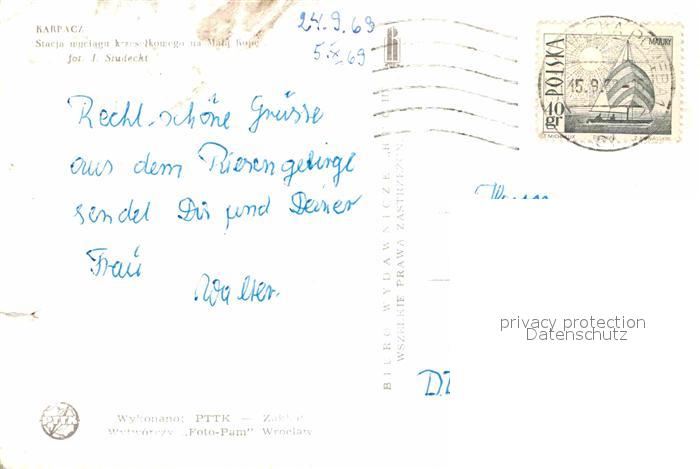 KARPACZ
Stacja wyciągu krzesełkowego na Małą Kopę
fot. J. Siudecki
24.9.69
5.X.69
Recht schöne Grüsse
aus dem Riesengebirge
sendet Dir und Deiner
Frau
Walter.
BIURO WYDAWNICZE „RUCH"
WSZELKIE PRAWA ZASTRZEŻONE
POLSKA
MAZURY
40 gr
15.9.
privacy protection
Datenschutz
Wykonano: PTTK — Zakład
Wytwórczy „Foto-Pam" Wrocław